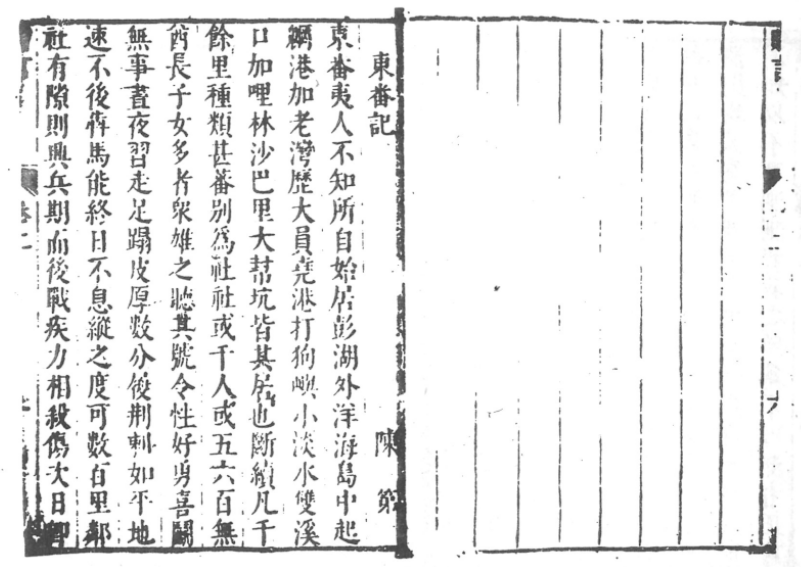 東番記
陳第
東番夷人不知所自始居彭湖外洋海島中起
網港加老灣歷大員堯港打狗嶼小淡水雙溪
口加哩林沙巴里大幫坑皆其居也斷續凡千
餘里種類甚蕃別為社社或千人或五六百無
酋長子女多者眾雄之聽其號令性好勇喜鬬
無事晝夜習走足蹋皮厚數分履荆刺如平地
速不後犇馬能終日不息縱之度可數百里鄰
社有隙則興兵期而後戰疾力相殺傷次日即
卷二